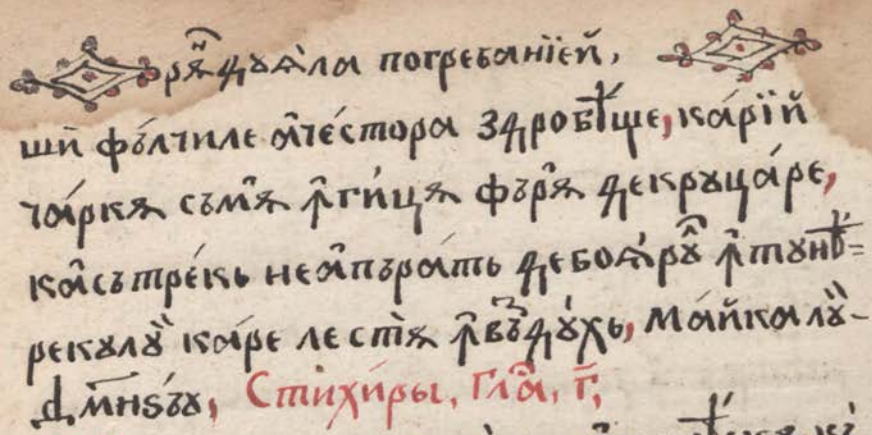 рѫⷩ҇дꙋѧ́ла погребанїей,
шѝ фъ́лчиле аче́стора здробѣще, ка́рїй
ча́ркѫ съмѫ̑ ꙟ҆гѝцѫ фърѫ̑ декрꙋца́ре,
ка̑съ тре́кь неа̑пъра́ть дебоѧ́рꙋ̑ ꙟ҆тꙋнѣ-
рекꙋлꙋ̀ ка́ре лестѫ̀ ꙟ҆въздꙋ́хь, ма́йка лꙋ̀-
Дм҃нѕъꙋ, Стихи́ры, Гла̑, г҃,